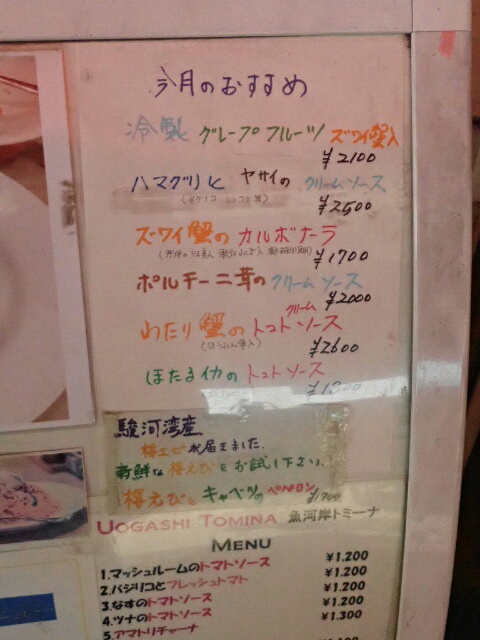 今月のおすすめ
冷製 グレープフルーツ ズワイ蟹入
¥2100
ハマグリと ヤサイの クリームソース
¥2500
ズワイ蟹の カルボナーラ
¥1700
ポルチーニ茸の クリームソース
¥2000
わたり蟹の トマト クリーム ソース
(ほうれん草入)
¥2600
ほたるイカの トマトソース
駿河湾産
桜エビ 水届きました.
新鮮な 桜えびを お試し下さい.
桜えびと キャベツの ペペロン
¥1700
UOGASHI TOMINA 魚河岸トミーナ
MENU
1.マッシュルームのトマトソース ¥1.200
2.バジリコとフレッシュトマト ¥1.200
3.なすのトマトソース ¥1.200
4.ツナのトマトソース ¥1.300
5.アマトリチャーナ